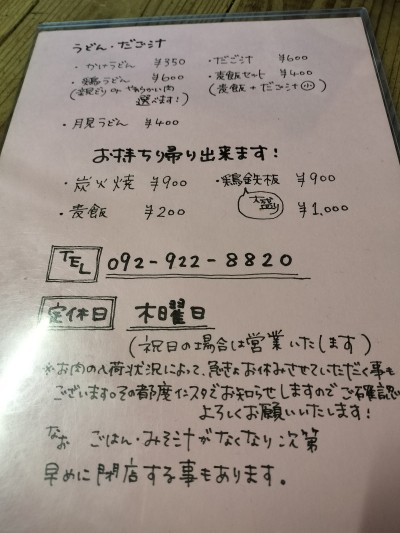 うどん・だご汁
・かけうどん ¥350
・鶏うどん ¥600
(親どり or やわらかい肉
選べます!)
・月見うどん ¥400
・だご汁 ¥600
・麦飯セット ¥400
(麦飯+だご汁小)
お持ち帰り出来ます!
・炭火焼 ¥900
・麦飯 ¥200
・鶏鉄板 ¥900
大盛り ¥1,000
TEL 092-922-8820
定休日 木曜日
(祝日の場合は営業いたします)
※お肉の入荷状況によって、急きょお休みさせていただく事も
ございます。その都度インスタでお知らせしますのでご確認
よろしくお願いいたします!
なお ごはん・みそ汁がなくなり次第
早めに閉店する事もあります。